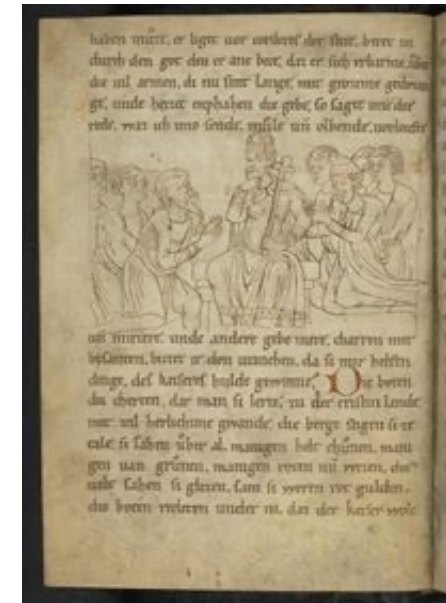 haben muͤte, er liget vor corderes der stat, bitet in
durch den got den er ane bete, daz er sich erbarme, uͤber
die uil armen, di nu sint lange, mit grimme gedrun
ge, unde heizet enphahen die gebe, so saget ime die
rede, waz ich imo sende, mule uñ olbende,
uñ unde andere gebe mere, charren mit
bisanten, bitet er den da si mir helfen
dinge, des keiseres hulde gewinne, Die boten
du cherten, dar man si lerte, zu der cristen lande
mit uil herlichme gewande, die berge stigen si ze
tale si sahen uͤber al, manigen helt chuͤnen, mani
gen uan gruͤnen, manigen roten uñ wizen, die
uelt sahen si glizen, sam si weren rot guldin,
die boten redeten under in, daz der keiser wole